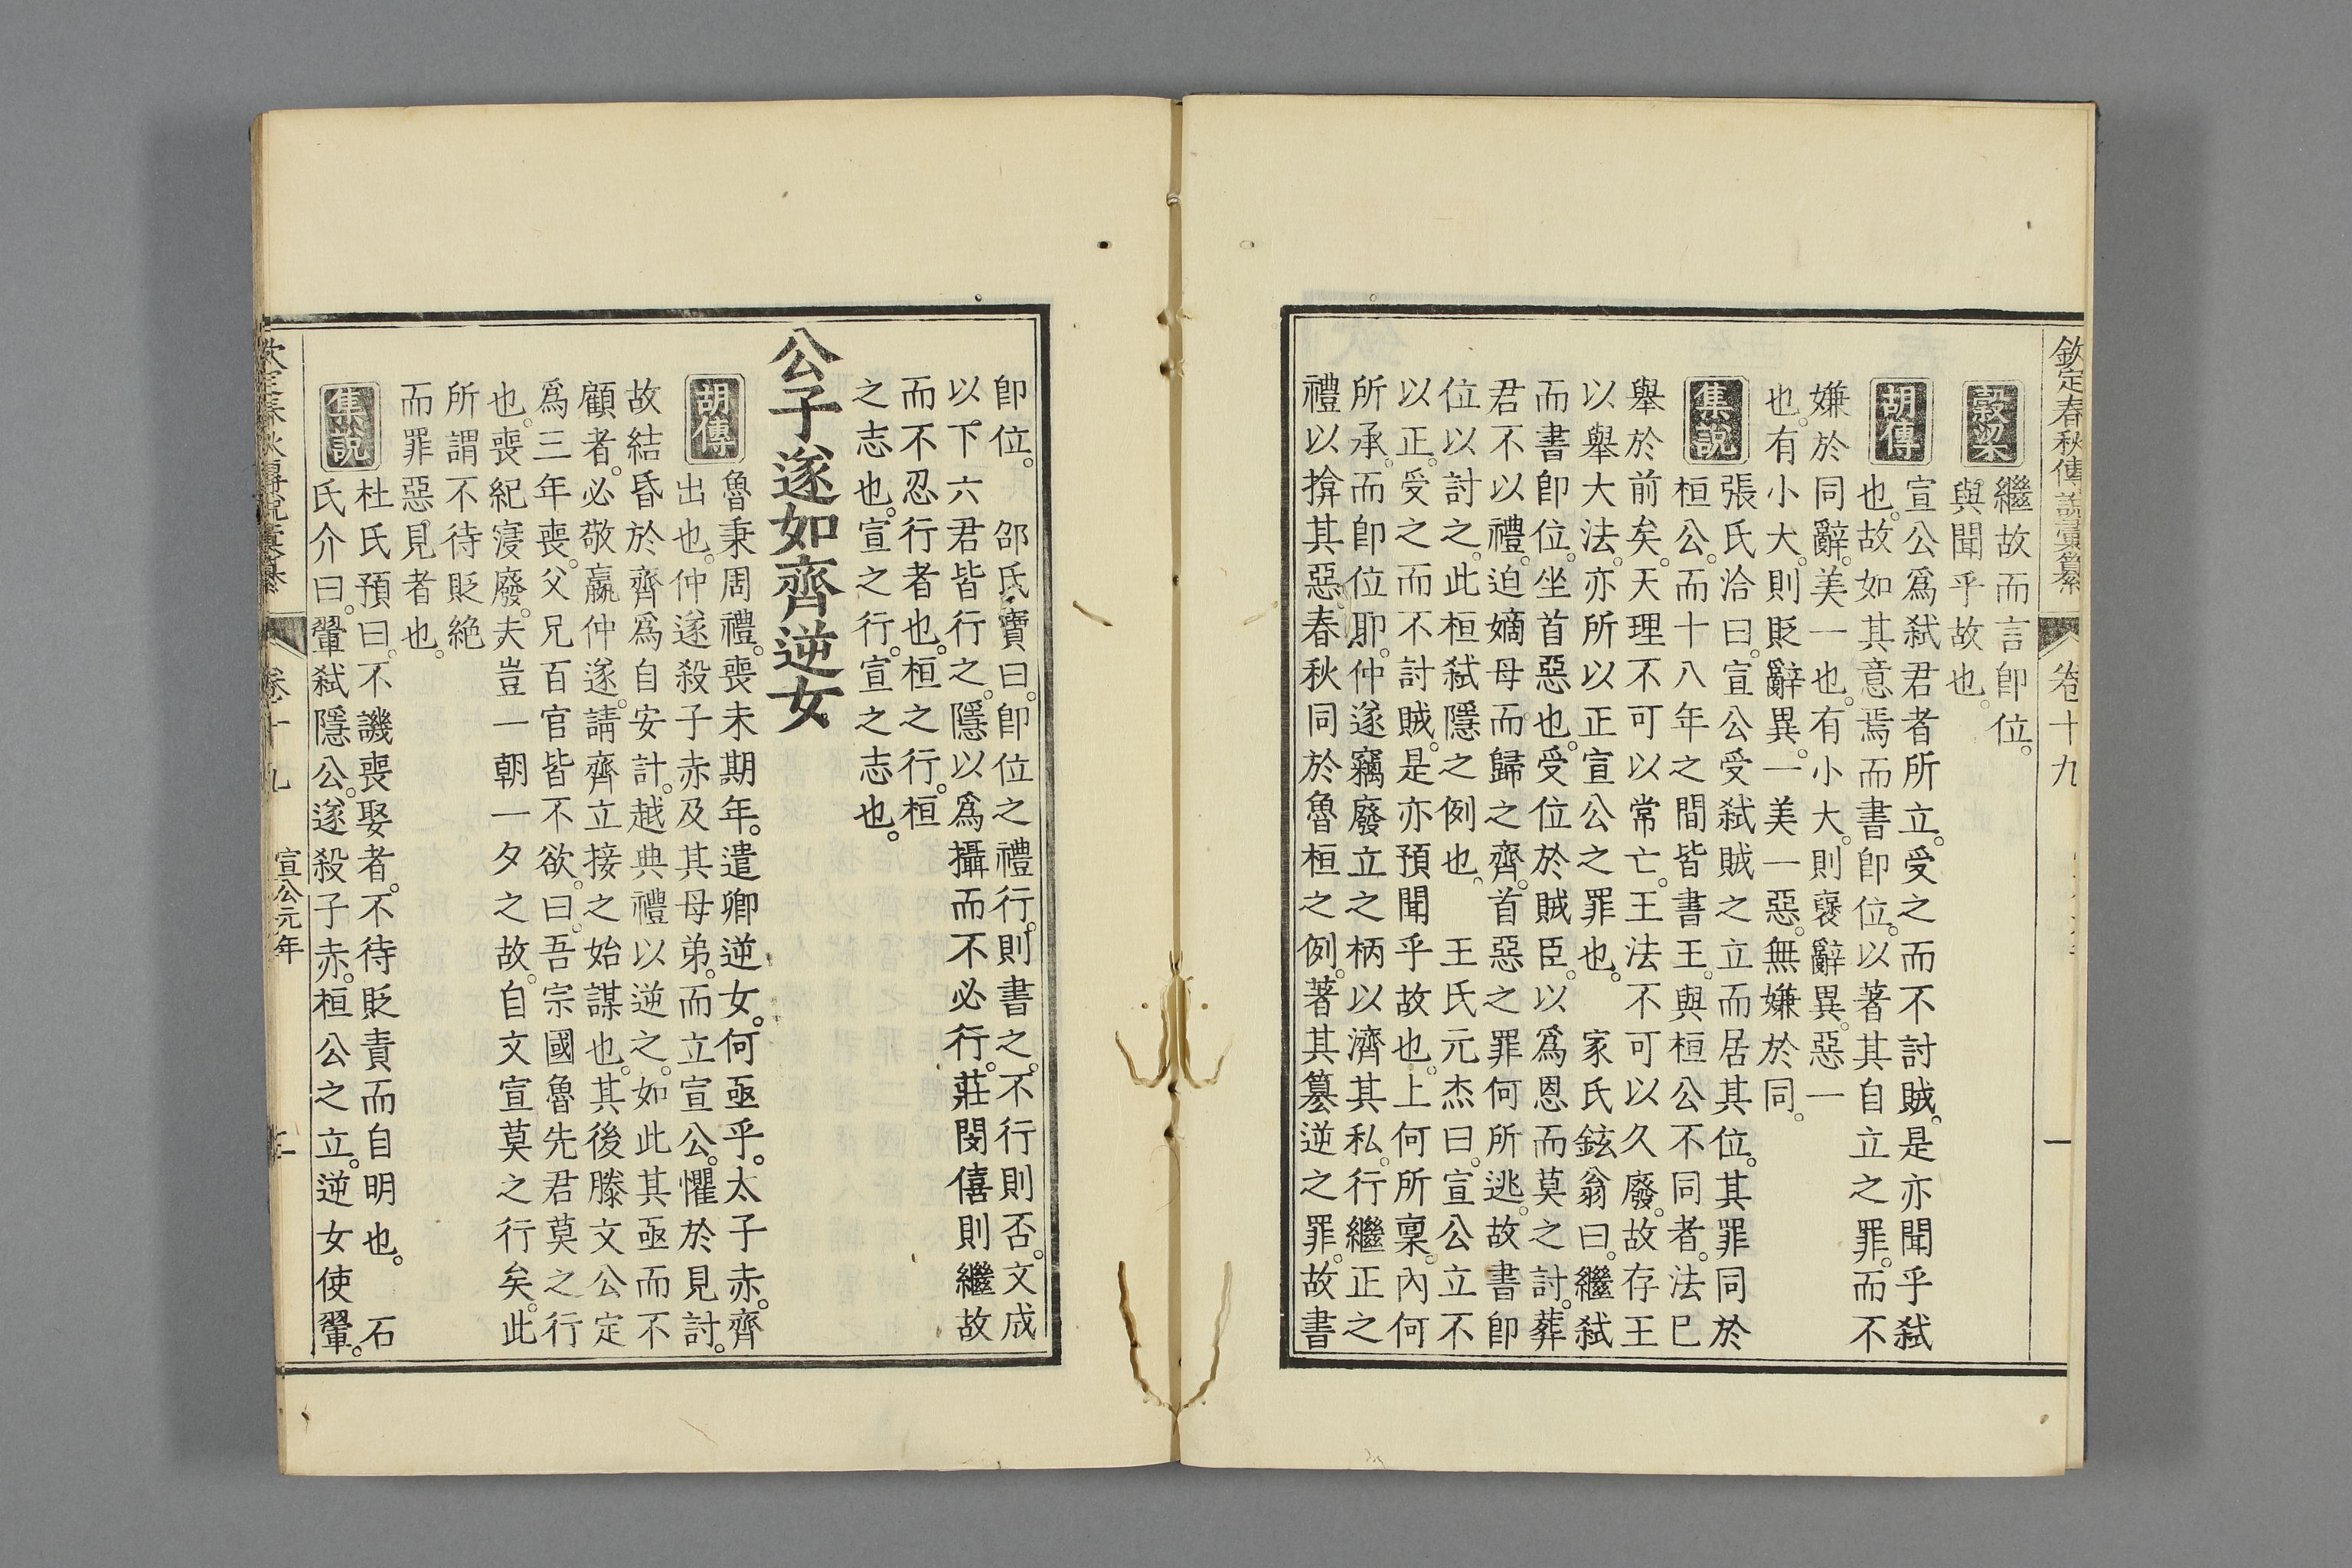 欽定春秋傳說彙纂 卷十九 一
穀梁 繼故而言卽位。
與聞乎故也。
胡傳 宣公爲弒君者所立。受之而不討賊。是亦聞乎弒
也。故如其意焉而書卽位。以著其自立之罪。而不
嫌於同辭。美一也。有小大。則襃辭異。惡一
也。有小大。則貶辭異。一美一惡。無嫌於同。
集說 張氏洽曰。宣公受弒賊之立而居其位。其罪同於
桓公。而十八年之間皆書王。與桓公不同者。法已
舉於前矣。天理不可以常亡。王法不可以久廢。故存王
以舉大法。亦所以正宣公之罪也。 家氏鉉翁曰。繼弒
而書卽位。坐首惡也。受位於賊臣。以爲恩而莫之討。葬
君不以禮。迫嫡母而歸之齊。首惡之罪何所逃。故書卽
位以討之。此桓弒隱之例也。 王氏元杰曰。宣公立不
以正。受之而不討賊。是亦預聞乎故也。上何所稟。內何
所承。而卽位耶。仲遂竊廢立之柄以濟其私。行繼正之
禮以揜其惡。春秋同於魯桓之例。著其篡逆之罪。故書
卽位。 邵氏寶曰。卽位之禮行。則書之。不行則否。文成
以下六君皆行之。隱以爲攝而不必行。莊閔僖則繼故
而不忍行者也。桓之行。桓
之志也。宣之行。宣之志也。
公子遂如齊逆女
胡傳 魯秉周禮。喪未期年。遣卿逆女。何亟乎。太子赤。齊
出也。仲遂殺子赤及其母弟。而立宣公。懼於見討。
故結昏於齊爲自安計。越典禮以逆之。如此其亟而不
顧者。必敬嬴仲遂。請齊立接之始謀也。其後滕文公定
爲三年喪。父兄百官皆不欲。曰。吾宗國魯先君莫之行
也。喪紀寖廢。夫豈一朝一夕之故。自文宣莫之行矣。此
所謂不待貶絕
而罪惡見者也。
集說 杜氏預曰。不譏喪娶者。不待貶責而自明也。 石
氏介曰。翬弒隱公。遂殺子赤。桓公之立。逆女使翬。
欽定春秋傳說彙纂 卷十九 宣公元年